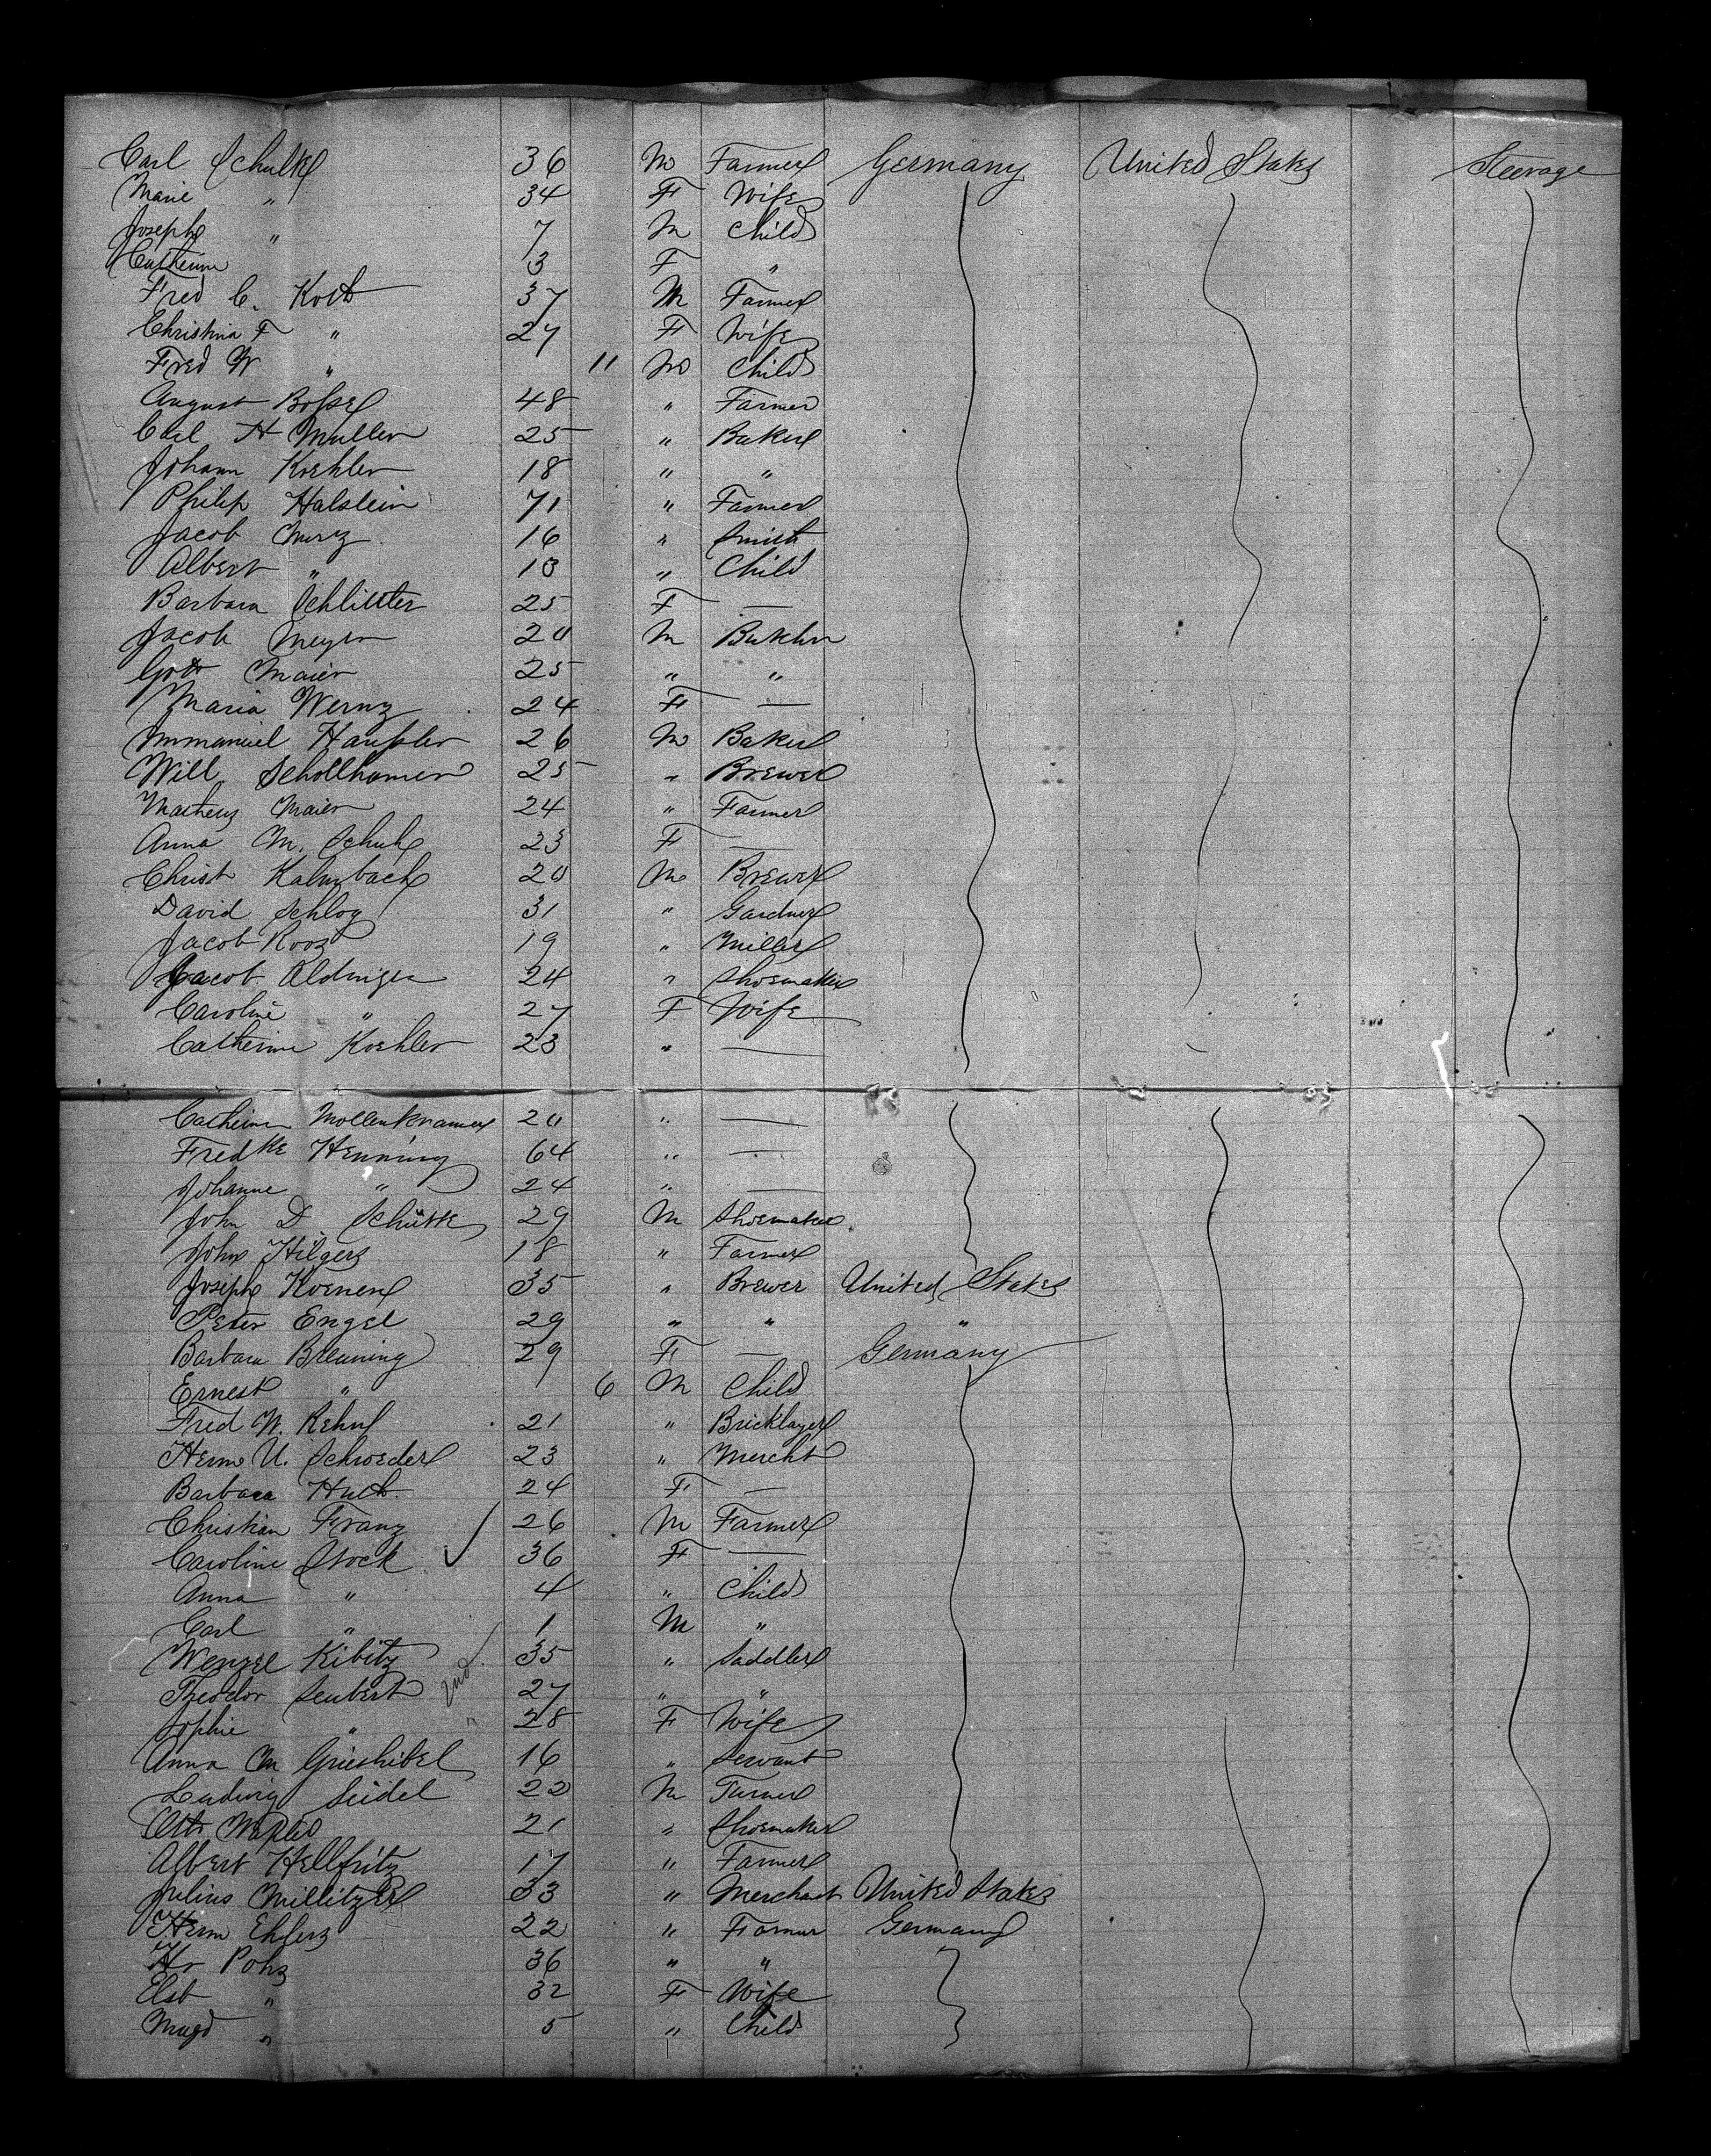 Carl Schulke 36 M Farmer Germany United States Steerage
Marie " 34 F Wife
Joseph " 7 M Child
Catherine 3 F "
Fred C. Koth 37 M Farmer
Christina F " 27 F Wife
Fred W " 11 M Child
August Bossel 48 " Farmer
Carl H Muller 25 " Baker
Johann Koehler 18 " "
Philip Halstein 71 " Farmer
Jacob 16 " Smith
Albert " 13 " Child
Barbara Schlitter 25 F —
Jacob Meyer 20 M Butcher
Gott Maier 25 " "
Maria Wernz 24 F —
Immanuel Haussler 26 M Baker
Will Schollhamer 25 " Brewer
Matheus Maier 24 " Farmer
Anna M. 23 F —
Christ Kalmbach 20 M Brewer
David Schloz 31 " Gardner
Jacob Rooz 19 " Miller
Jacob Aldinger 24 " Shoemaker
Caroline " 27 F Wife
Catherine Koehler 23 " —
Catherine Mollenkramer 20 " —
Fredke Henning 64 " —
Johanne " 24 " —
John D. Schütte 29 M Shoemaker
John Hilgers 18 " Farmer
Joseph Koenen 35 " Brewer United States
Peter Engel 29 " " "
Barbara Breuning 29 F — Germany
Ernest " 6 M Child
Fred W. Rehm 21 " Bricklayer
Herm U. Schroeder 23 " Mercht
Barbara Huth 24 F —
Christian Franz 26 M Farmer
Caroline Stock 36 F —
Anna " 4 " Child
Carl " 1 M "
Wenzel Kibitz 35 " Saddler
Theodor Seubert 2nd 27 " "
Sophie " " 28 F Wife
Anna M Grieshibel 16 " Servant
Ludwig Seidel 22 M Turner
Otto 21 " Shoemaker
Albert Hellfritz 17 " Farmer
Julius Millitzer 33 " Merchant United States
Herm Ehlers 22 " Farmer Germany
Hr Pohz 36 " "
Elsb " 32 F Wife
Magd " 5 " Child